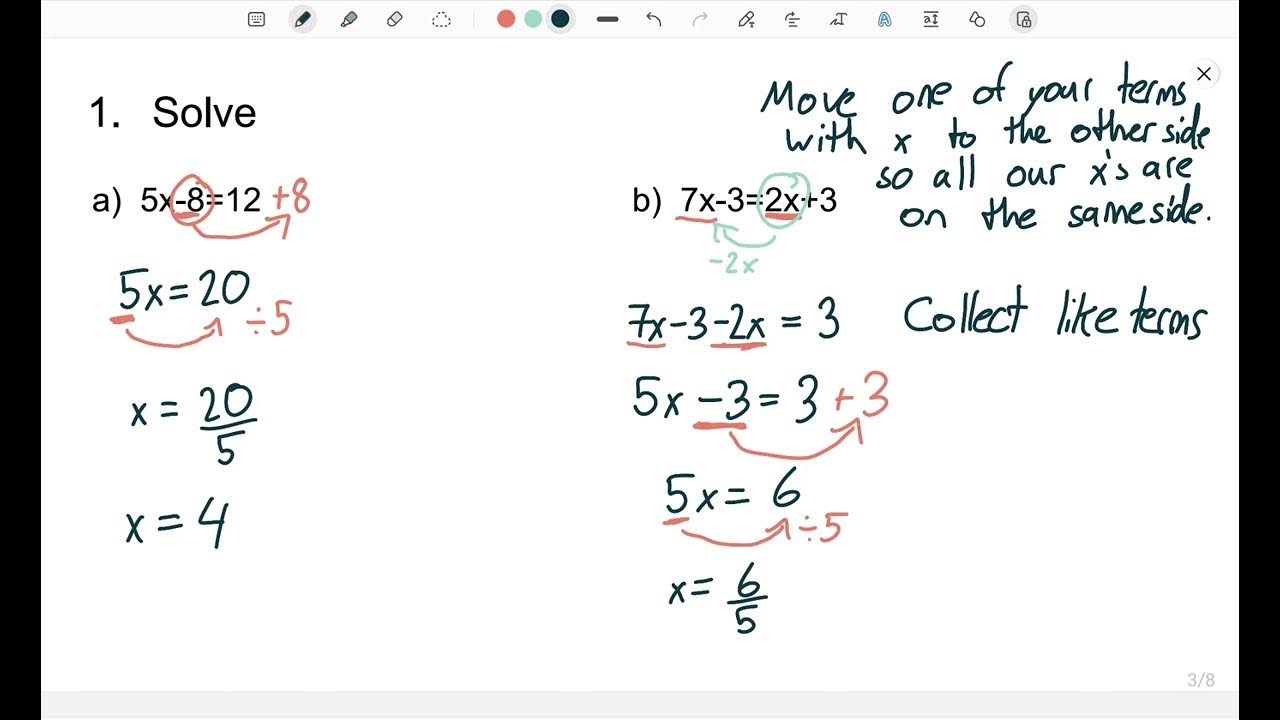 1. Solve
a) 5x-8=12 +8
5x=20
÷5
x = 20/5
x = 4
b) 7x-3=2x+3
-2x
7x-3-2x = 3
5x -3 = 3 +3
5x = 6
÷5
x = 6/5
Move one of your terms
with x to the other side
so all our x's are
on the same side.
Collect like terms
3/8